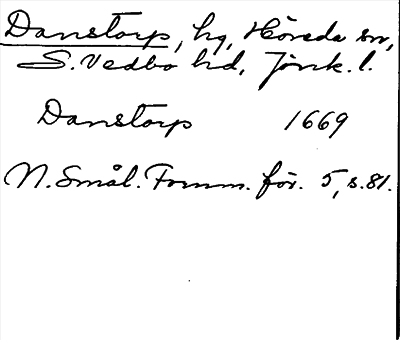 Danstorp, hg, Höreda sn,
S. Vedbo hd, Jönk. l.
Danstorp 1669
N. Smål. Fornm. för. 5, s. 81.